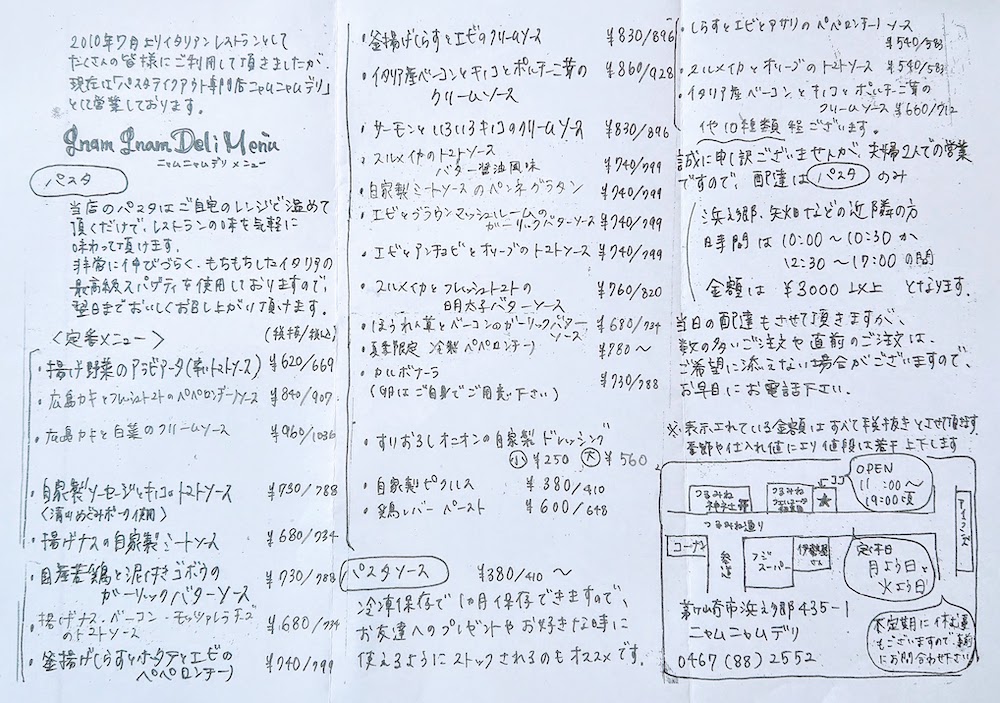 2010年7月よりイタリアンレストランとして
たくさんの皆様にご利用して頂きましたが、
現在は「パスタテイクアウト専門店ニャムニャムデリ」
として営業しております。
Gnam Gnam Deli Menu
ニャムニャムデリ メニュー
パスタ
当店のパスタはご自宅のレンジで温めて
頂くだけで、レストランの味を気軽に
味わって頂けます。
非常に伸びづらく、もちもちしたイタリアの
最高級スパゲティを使用しておりますので、
翌日までおいしくお召し上がり頂けます。
<定番メニュー> (税抜/税込)
・揚げ野菜のアラビアータ(辛いトマトソース) ¥620/669
・広島カキとフレッシュトマトのペペロンチーノソース ¥840/907
・広島カキと白菜のクリームソース ¥960/1036
・自家製ソーセージとキノコのトマトソース ¥730/788
(清川めぐみポーク使用)
・揚げナスの自家製ミートソース ¥680/734
・国産若鶏と泥付きゴボウの
ガーリックバターソース ¥730/788
・揚げナス・ベーコン・モッツァレラチーズ
のトマトソース ¥680/734
・釜揚げしらすとホタテとエビの
ペペロンチーノ ¥740/799
・釜揚げしらすとエビのクリームソース ¥830/896
・イタリア産ベーコンとキノコとポルチーニ茸の
クリームソース ¥860/928
・サーモンといろいろキノコのクリームソース ¥830/896
・スルメイカのトマトソース
バター醤油風味 ¥740/799
・自家製ミートソースのペンネグラタン ¥740/799
・エビとブラウンマッシュルームの
ガーリックバターソース ¥740/799
・エビとアンチョビとオリーブのトマトソース ¥740/799
・スルメイカとフレッシュトマトの
明太子バターソース ¥760/820
・ほうれん草とベーコンのガーリックバター
ソース ¥680/734
・夏季限定 冷製ペペロンチーノ ¥780〜
・カルボナーラ
(卵はご自身でご用意下さい) ¥730/788
・すりおろしオニオンの自家製ドレッシング
小 ¥250 大 ¥560
・自家製ピクルス ¥380/410
・鶏レバーペースト ¥600/648
パスタソース ¥380/410〜
冷凍保存で1カ月保存できますので、
お友達へのプレゼントやお好きな時に
使えるようにストックされるのもオススメです。
・しらすとエビとアサリのペペロンチーノソース
¥540/583
・スルメイカとオリーブのトマトソース ¥540/583
・イタリア産ベーコンとキノコとポルチーニ茸の
クリームソース ¥660/712
他10種類程ございます。
誠に申し訳ございませんが、夫婦2人での営業
ですので、配達はパスタのみ
浜之郷、矢畑などの近隣の方
日時間は 10:00〜10:30か
12:30〜17:00の間
金額は ¥3000以上 となります。
当日の配達もさせて頂きますが、
数の多いご注文や直前のご注文は、
ご希望に添えない場合がございますので、
お早目にお電話下さい。
※表示されている金額はすべて税抜きとさせて頂きます
季節や仕入れ値により値段は若干上下します
OPEN
11:00〜
19:00頃
ココ
つるみね
神社
つるみね
つるみね通り
コーナン
参道
フジ
スーパー
伊勢屋
さん
定休日
月よう日と
火よう日
茅ヶ崎市浜之郷435-1
ニャムニャムデリ
0467(88)2552
不定期に休む事
もございますので、事前
にお問合わせ下さい